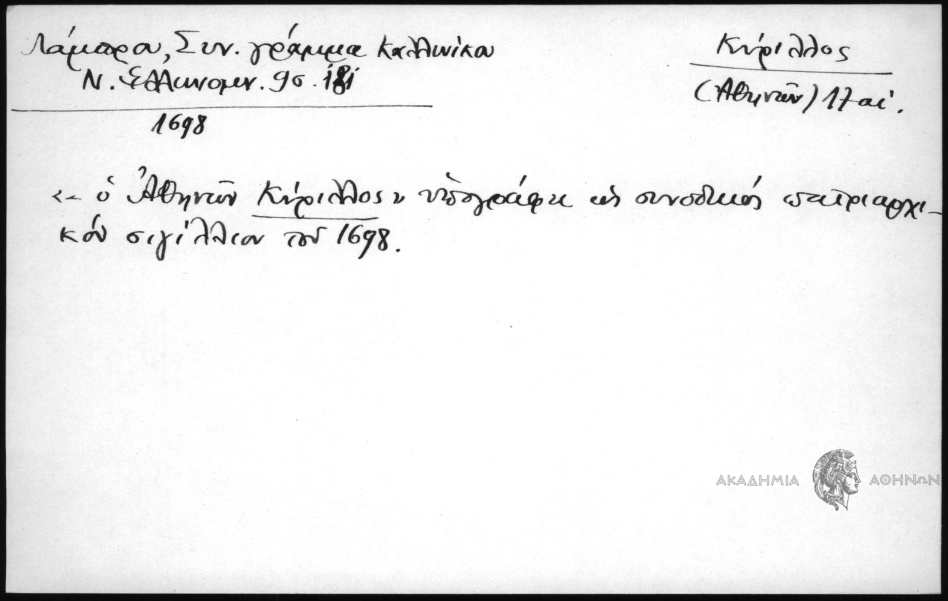 Λάμπρου, Συν. γράμμα Καλλινίκου
Ν. Ελληνομν. 9ος
1698
Κύριλλος
(Ἀθηνῶν) 17 αἰ.
«– ὁ Ἀθηνῶν Κύριλλος» ὑπογράφει ὡς συνοδικός πατριαρχι-
κόν σιγίλλιον τοῦ 1698.
ΑΚΑΔΗΜΙΑ ΑΘΗΝΩΝ